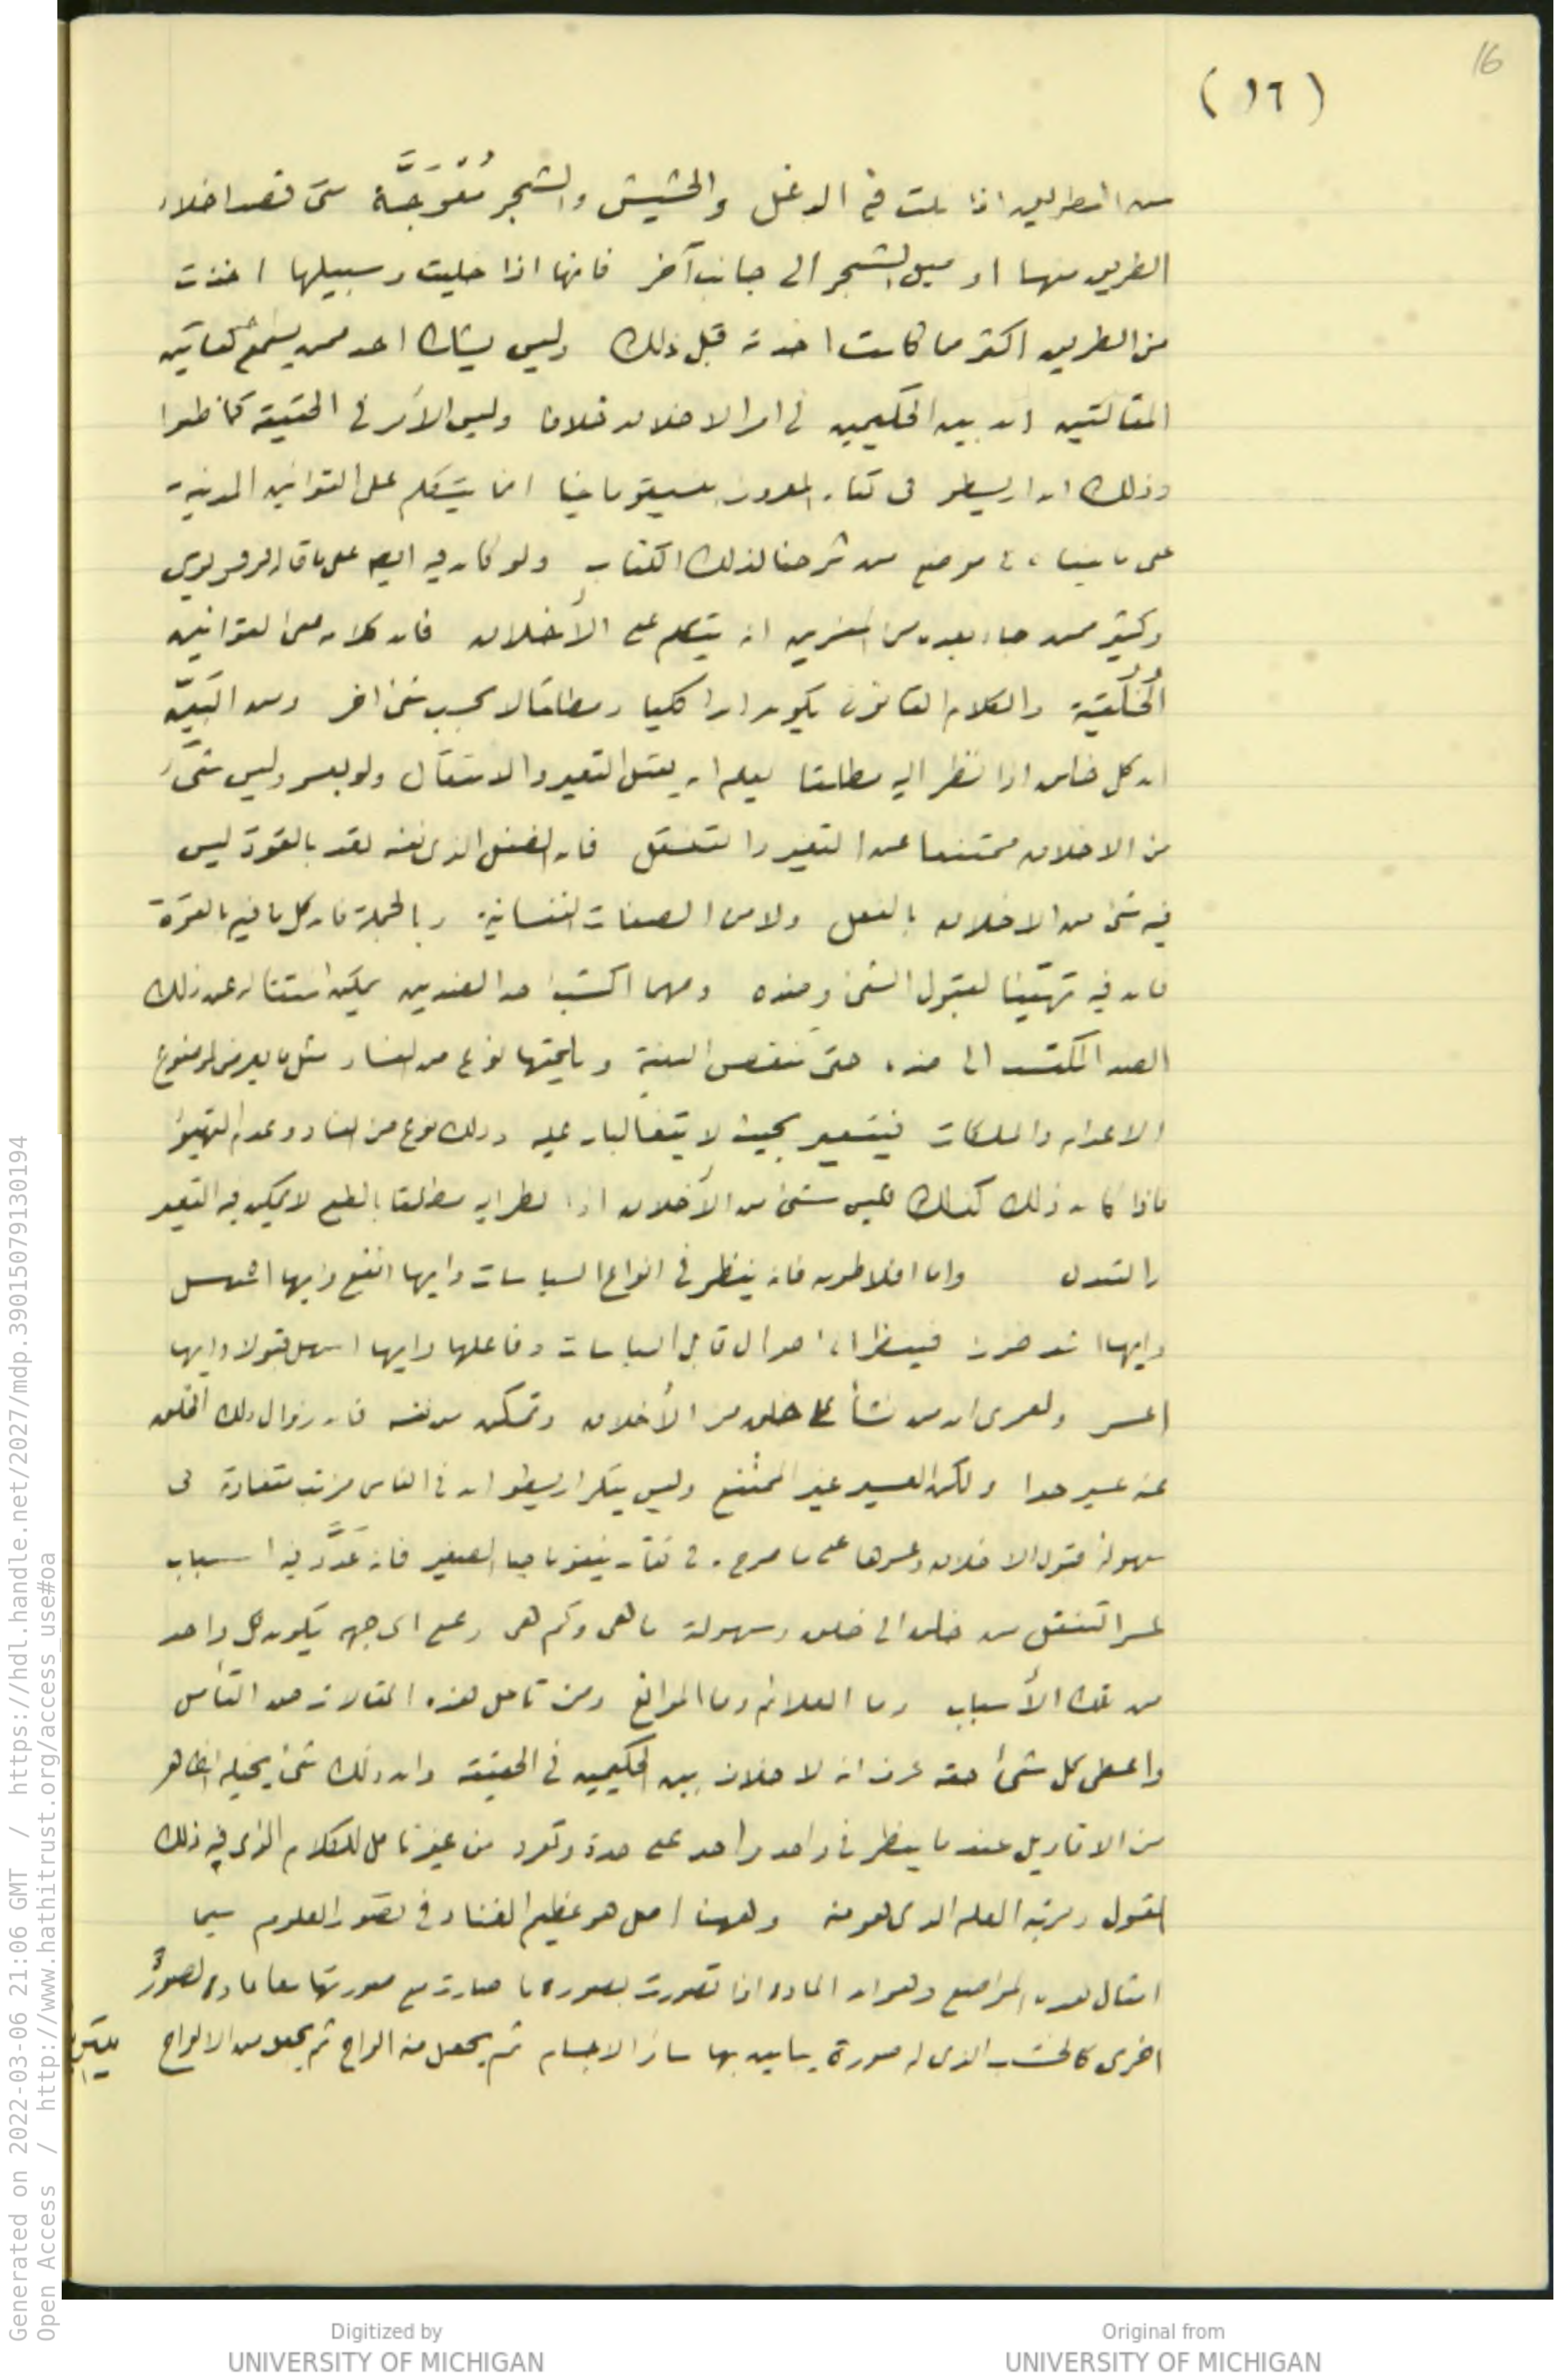 16
(١٦)
من الطريق اذا بلت في الدغل والحشيش والشجر مُعْوَجَّة متى قصد اخلاء
الطريق منها او ميل الشجر الى جانب آخر فانها اذا خليت وسبيلها اخذت
من الطريق اكثر مما كانت اخذته قبل ذلك وليس يشك احد ممن يسمع كفايتى
المقالتين ان بين الحكيمين فى امر الاخلاق خلافا وليس الأمر فى الحقيقة كما ظنوا
وذلك ان اريسطو فى كتابه المعروف بنيقوماخيا انما يتكلم على القوانين المدنية
على ما بيناه فى موضع من شرحنا لذلك الكتاب ولو كان فيه ايضا على ما قاله الفرفوريوس
وكثير ممن جاء بعده من المفسرين انه يتكلم على الأخلاق فان كلامه على القوانين
الخُلُقيّة والكلام القانونى يكون ابدا كليا ومطلقا لا بحسب شئ اخر ومن البيّن
ان كل خلق اذا نظر اليه مطلقا يعلم انه يقبل التغير والانتقال ولو بعسر وليس شئ
من الاخلاق ممتنعا عن التغير والتنقل فان الطفل الذى نفسه تعد بالقوة ليس
فيه شئ من الاخلاق بالفعل ولا من الصفات النفسانية وبالجملة فان كل ما فيه بالقوّة
فان فيه تهيّئا لقبول الشئ وضده ومهما اكتسب احد الضدين يمكن انتقاله عن ذلك
الضد المكتسب الى ضده حتى تنقص البنية ويلحقها نوع من الفساد مثل ما يعرض لموضوع
الاعدام والملكات فيتغير بحيث لا يتغالبان عليه وذلك نوع من الفساد وعدم التهيؤ
فاذا كان ذلك كذلك فليس شئ من الأخلاق اذا نظر اليه مطلقا بالطبع لا يمكن فيه التغير
والتبدل واما افلاطون فانه ينظر فى انواع السياسات وايها انفع وايها اسهل
وايها اشد ضررا فينظر الى احوال قابل السياسات وفاعلها وايها اسهل قبولا وايها
اعسر ولعمرى ان من نشأ على خلق من الأخلاق وتمكن من نفسه فان زوال ذلك الخلق
عنه عسير جدا ولكن العسير غير الممتنع وليس ينكر اريسطو ان فى الناس من تتفاوت فى
سهولة قبول الاخلاق وعسرها على ما صرح به فى كتابه نيقوماخيا الصغير فانه عَدَّد فيه اسباب
عسر التنقل من خلق الى خلق وسهولة ما هى وكم هى وعلى اى جهة يكون كل واحد
من تلك الأسباب وما العلائم وما الموانع ومن تامل هذه المقالات حق التأمل
واعطى كل شئ حقه عرف انه لا خلاف بين الحكيمين فى الحقيقة وان ذلك شئ يخيله الظاهر
من الاقاويل عند ما ينظر فى واحد واحد على حدة وتفرد من غير تامل للكلام الذى فيه ذلك
القول ومرتبة العلم الذى هو منه وههنا اصل هو عظيم الغناء فى تصور العلوم سيما
امثال هذه المواضع وهو ان المادة اذا تصورت بصورة ما صارت مع صورتها معا مادة لصورة
اخرى كالخشب الذى له صورة يباين بها سائر الاجسام ثم يجعل منه الواح ثم يجعل من الالواح
Generated on 2022-03-06 21:06 GMT / https://hdl.handle.net/2027/mdp.39015079130194
Open Access / http://www.hathitrust.org/access_use#oa
Digitized by
UNIVERSITY OF MICHIGAN
Original from
UNIVERSITY OF MICHIGAN